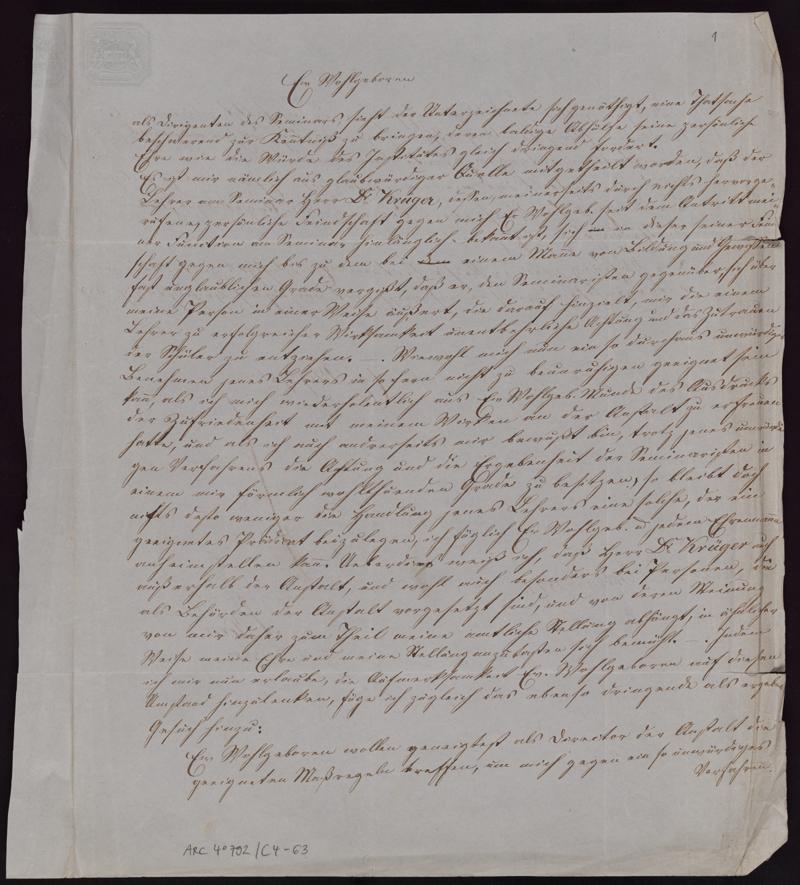 1
Ew Wohlgeboren
als Dirigenten des Seminars sieht der Unterzeichnete sich genöthigt, eine Thatsache
beschwerend zur Kenntniß zu bringen, deren baldige Abhülfe seine persönliche
Ehre wie die Würde des Institutes gleich dringend fordert.
Es ist mir nämlich aus glaubwürdiger Quelle mitgetheilt worden, daß der
Lehrer am Seminar Herr Dr. Krüger, dessen, meinerseits durch nichts hervorge-
rufene, persönliche Feindschaft gegen mich Ew Wohlgeb. seit dem Antritt mei-
ner Function am Seminar hinlänglich bekannt ist, sich in dieser seiner Feind
schaft gegen mich bis zu dem bei einem Manne von Bildung und Gewissen
fast unglaublichen Grade vergißt, daß er, den Seminaristen gegenüber sich über
meine Person in einer Weise äußert, die darauf hinzielt, mir die einem
Lehrer zu erfolgreicher Wirksamkeit unentbehrliche Achtung und das Zutrauen
der Schüler zu entziehen. — Wiewohl mich nun ein so durchaus unwürdiges
Benehmen jenes Lehrers in sofern nicht zu beunruhigen geeignet sein
kann, als ich mich wiederholentlich aus Ew Wohlgeb. Munde des Ausdrucks
der Zufriedenheit mit meinem Wirken an der Anstalt zu erfreuen
hatte, und als ich auch andrerseits mir bewußt bin, trotz jenes unwürdi
gen Verfahrens die Achtung und die Ergebenheit der Seminaristen in
einem mir förmlich wohlthuenden Grade zu besitzen, so bleibt doch
nichts desto weniger die Handlung jenes Lehrers eine solche, der ein
geeignetes Prädicat beizulegen, ich füglich Ew Wohlgeb. u jedem Ehrenmanne
anheimstellen kann. Ueberdies weiß ich, daß Herr Dr. Krüger auch
außerhalb der Anstalt, und wohl auch besonders bei Personen, die
als Behörden der Anstalt vorgesetzt sind, und von deren Meinung
von mir daher zum Theil meine amtliche Stellung abhängt, in ähnlicher
Weise meine Ehre und meine Stellung anzutasten sich bemüht. — Indem
ich mir nun erlaube, die Aufmerksamkeit Ew. Wohlgeboren auf diesen
Umstand hinzulenken, füge ich zugleich das ebenso dringende als ergebene
Gesuch hinzu:
Ew Wohlgeboren wollen geneigtest als Director der Anstalt die
geeigneten Maßregeln treffen, um mich gegen ein so unwürdiges
Verfahren
ARC 4° 792/C4-63